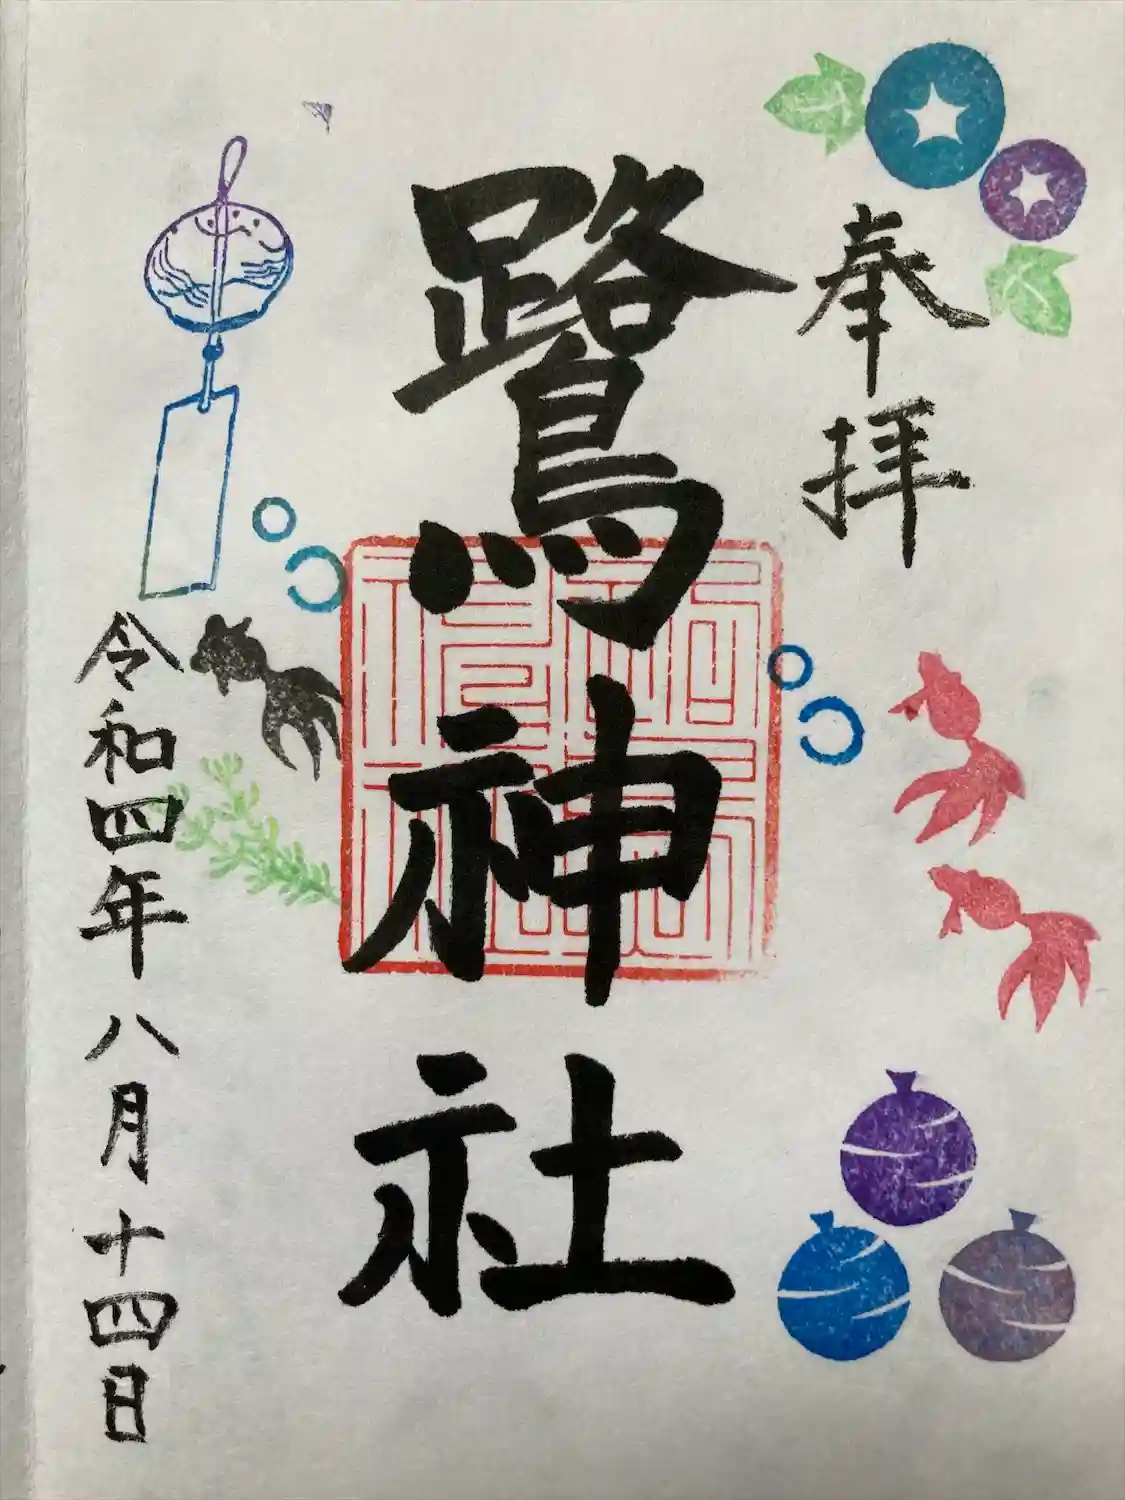 奉拝
鷺神社
令和四年八月十四日